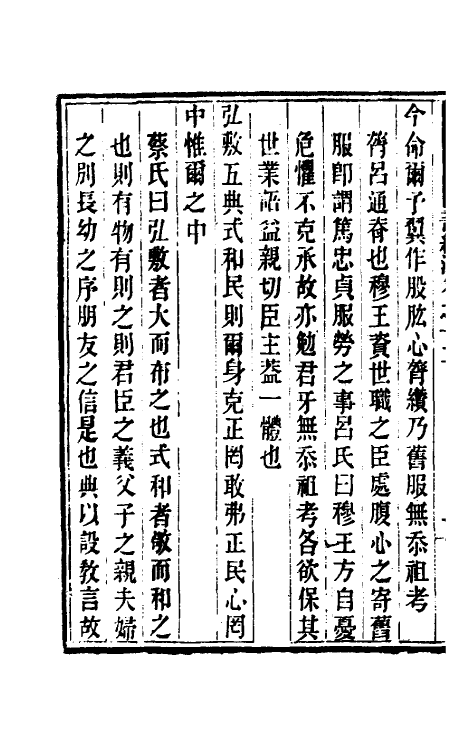 今命爾予翼作股肱心膂纘乃舊服無忝祖考
膂呂通脊也穆王資世職之臣處腹心之寄舊
服卽謂篤忠貞服勞之事呂氏曰穆王方自憂
危懼不克承故亦勉君牙無忝祖考各欲保其
世業語益親切臣主葢一體也
弘敷五典式和民則爾身克正罔敢弗正民心罔
中惟爾之中
蔡氏曰弘敷者大而布之也式和者敬而和之
也則有物有則之則君臣之義父子之親夫婦
之別長幼之序朋友之信是也典以設教言故